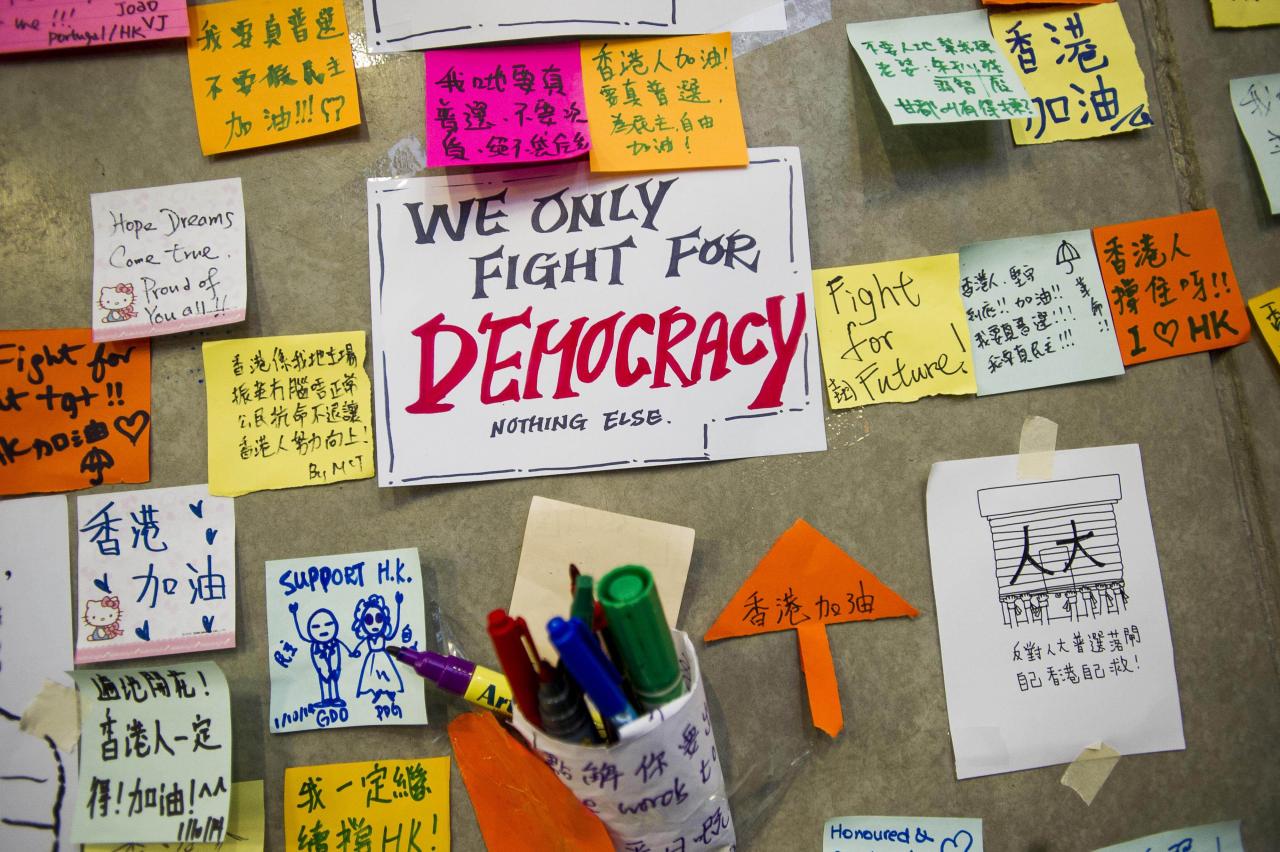 me !!! João
Portugal/HK VJ
我要真普選
不要假民主
加油!!!
我哋要真
普選.不要次
貨.絕不袋住先
香港人加油!
要真普選,
為民主,自由
加油!
香港
加油
Hope Dreams
Come true.
Proud of
You all!!
WE ONLY
FIGHT FOR
DEMOCRACY
NOTHING ELSE.
Fight
for
Future!
香港人.堅守
到底!! 加油!!
我要真普選!!!
我要真民主!!!
香港人
撐住呀!!
I ♡ HK
Fight for
!!
HK加油
香港係我地主場
公民抗命不退讓
香港人努力向上!
By MCT
香港
加油
SUPPORT H.K.
1/10/14 GDO
香港加油
人大
反對人大普選落閘
自己香港自己救!
遍地開花!
香港人一定
得!加油!^^
1/10/14
我一定繼
續撐HK!
Art
點解你要
words
Honoured &